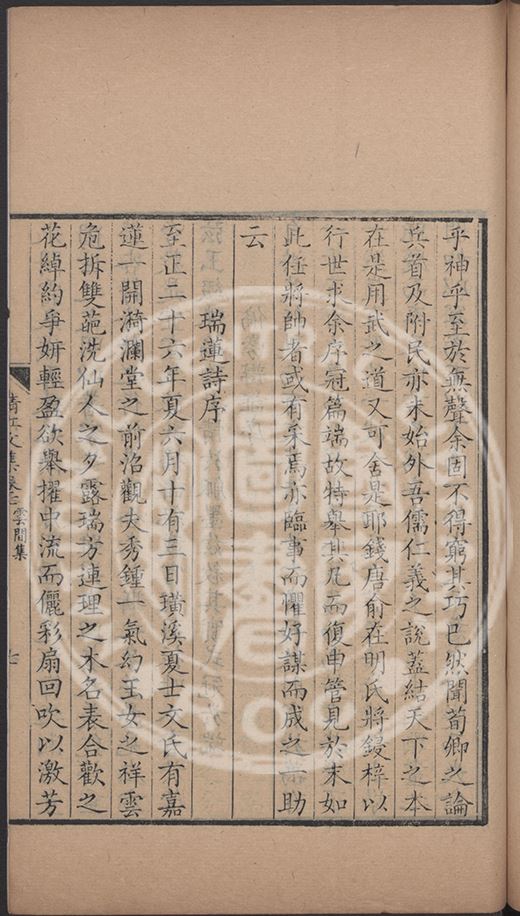 乎神乎至於無聲余固不得窮其巧已然聞荀卿之論
兵首及附民亦未始外吾儒仁義之說蓋結天下之本
在是用武之道又可舍是耶錢唐俞在明氏將鋟梓以
行世求余序冠篇端故特舉其凡而復申管見於末如
此任將帥者或有采焉亦臨事而懼好謀而成之助
云
瑞蓮詩序
至正二十六年夏六月十有三日璜溪夏士文氏有嘉
蓮一開漪瀾堂之前沼觀夫秀鍾一氣約玉女之祥雲
危拆雙葩洗仙人之夕露瑞方連理之木名表合歡之
花綽約爭妍輕盈欲舉擢中流而儷彩扇回吹以激芳
清江文集卷七雲間集
七